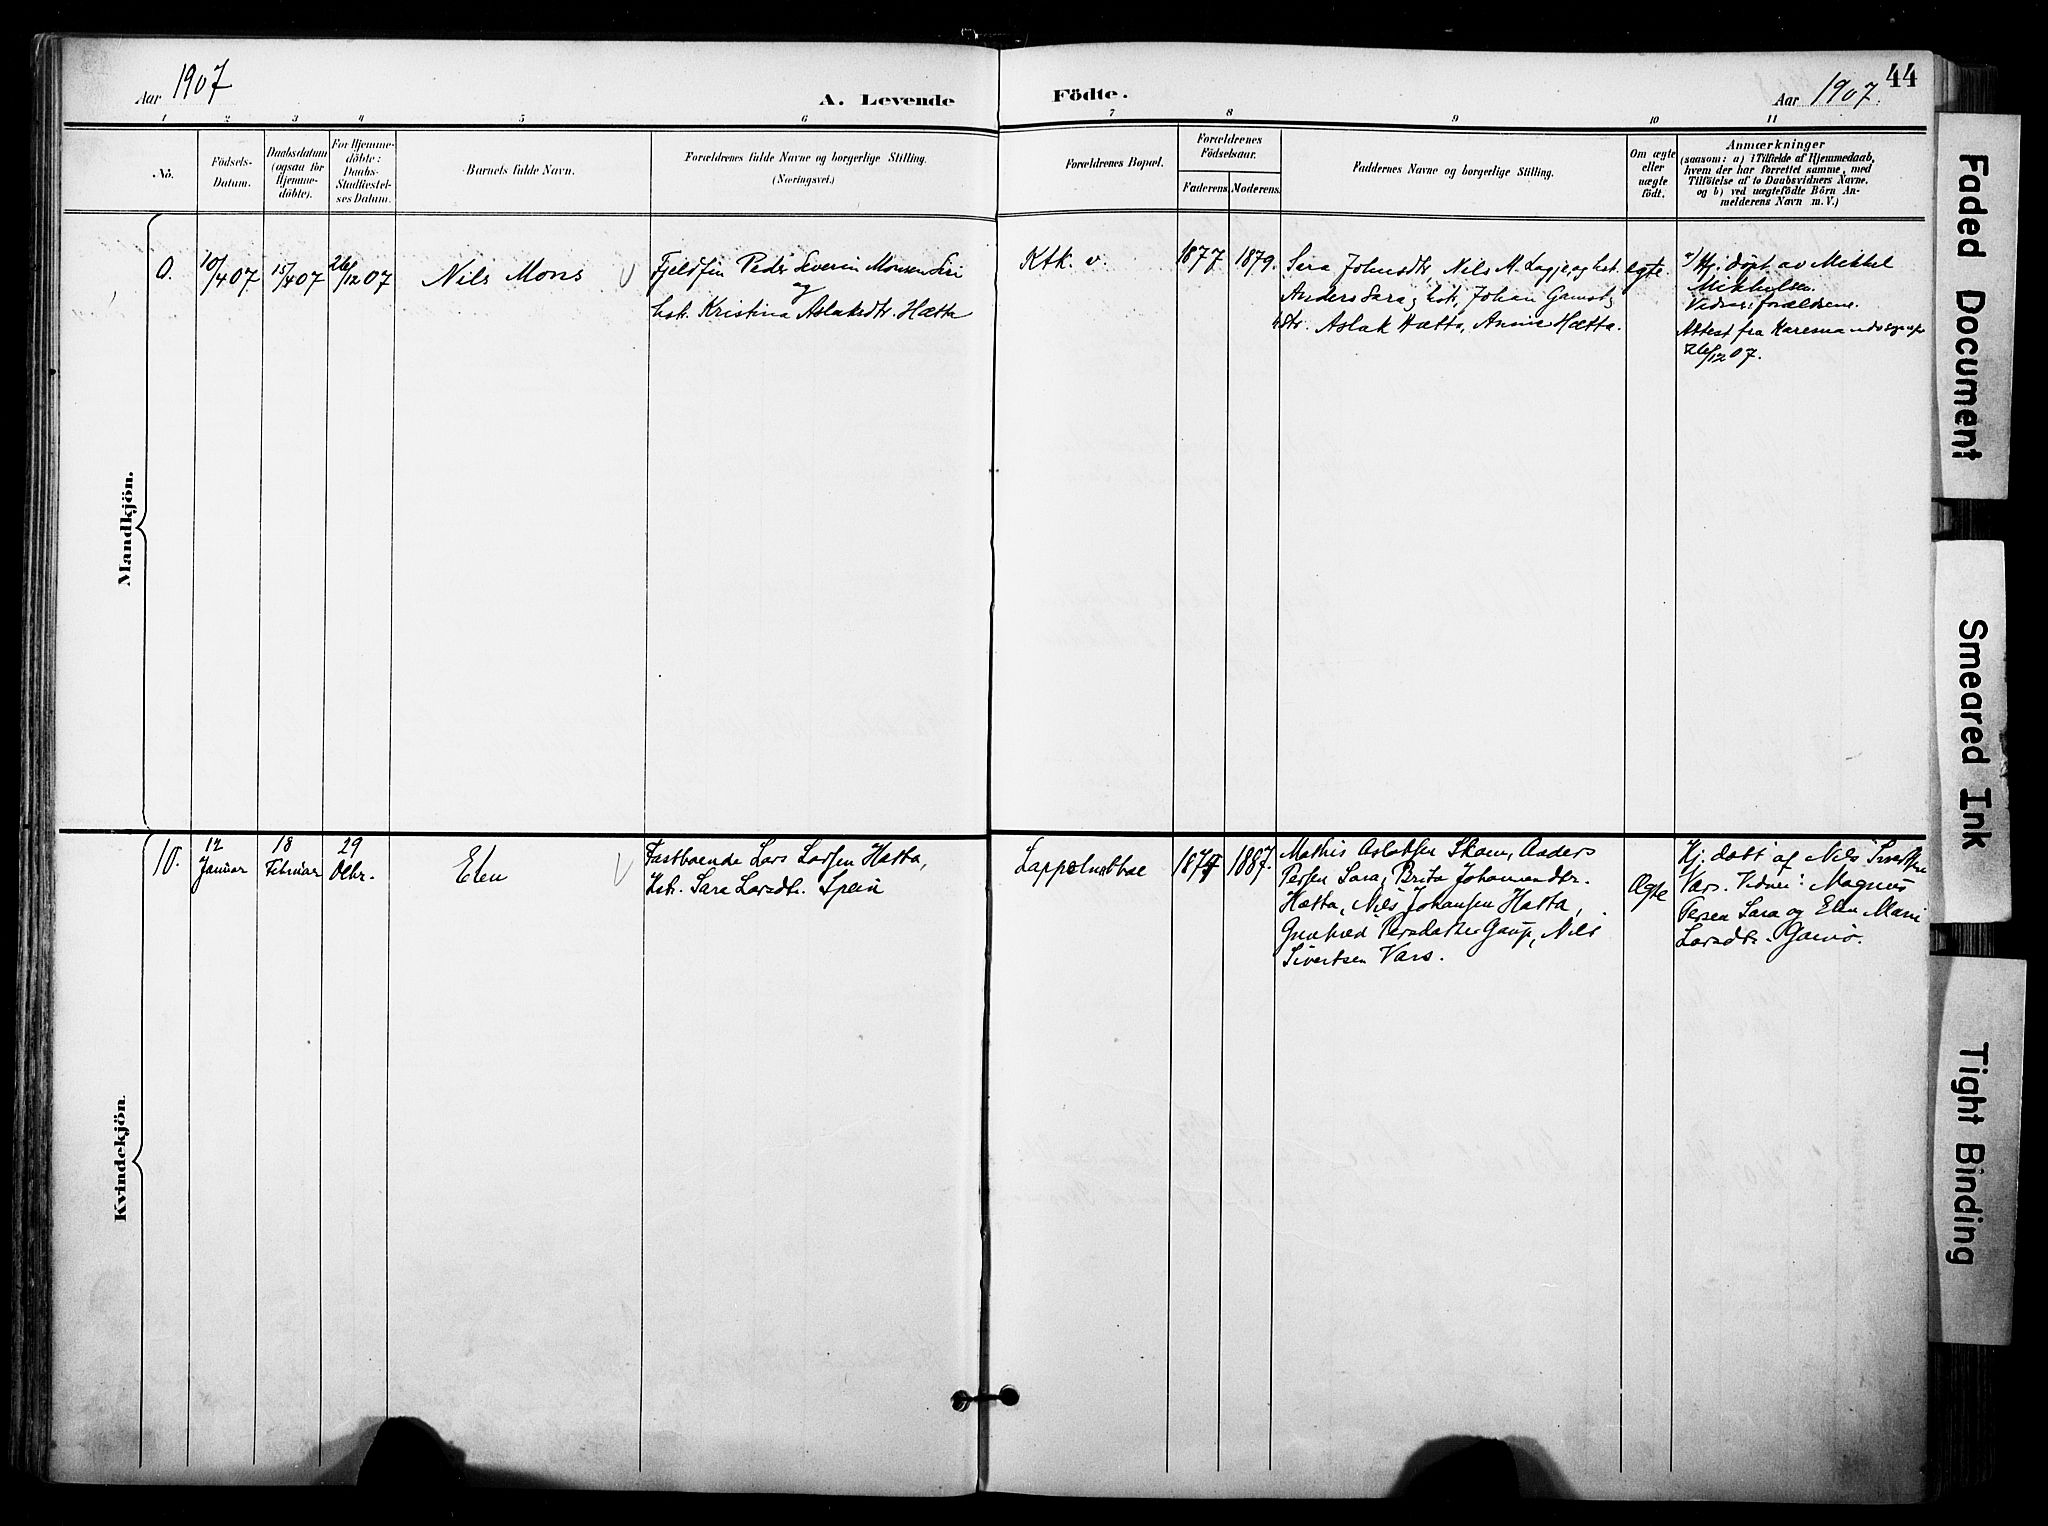 Aar 1907
A. Levende Födte.
Aar 1907.
44
1 2 3 4 5 6 7 8 9 10 11
No.
Födsels-
Datum.
Daabsdatum
(ogsaa for
Hjemme-
döbte).
For Hjemme-
döbte:
Daabs-
Stadfæstel-
ses Datum.
Barnets fulde Navn.
Forældrenes fulde Navne og borgerlige Stilling.
(Næringsvei.)
Forældrenes Bopæl.
Forældrenes
Födselsaar.
Faderens.
Moderens.
Faddernes Navne og borgerlige Stilling.
Om ægte
eller
uægte
født.
Anmærkninger
(saasom: a) i Tilfælde af Hjemmedaab,
hvem der har forrettet samme, med
Tilföielse af to Daabsvidners Navne,
og b) ved uægtefödte Börn An-
melderens Navn m. V.)
Mandkjön.
0.
10/4 07
15/4 07
26/12 07
Nils Mons
Fjeldfin Peder Severin Monsen Siri
og
hst. Kristina Aslaksdtr. Hætta
Ktk. v.
1877
1879.
Sara Johnsdtr, Nils M. og hst.
Anders Sara og hst, Johan
Aslak Hætta, Anne Hætta.
ægte.
Hj. døpt av Mikkel
Mikkelsen.
Vidner: forældrene.
Attest fra
26/12 07.
Kvindekjön.
10.
12
Januar
18
Februar
29
Oktbr.
Elen
Fastboende Lars Larsen Hætta,
Hst. Sara Larsdtr. Spein
Lappoluobbal
1887.
Mathis Aslaksen Skum, Anders
Persen Sara, Brita Johannesdtr.
Hætta, Nils Johansen Hætta,
Persdatter Gaup, Nils
Sivertsen Vars.
Ægte
Hj. døbt af Nils Sivertsen
Vars. Vidner: Magnus
Persen Sara og Elen Marie
Larsdtr.
Faded Document
Smeared Ink
Tight Binding